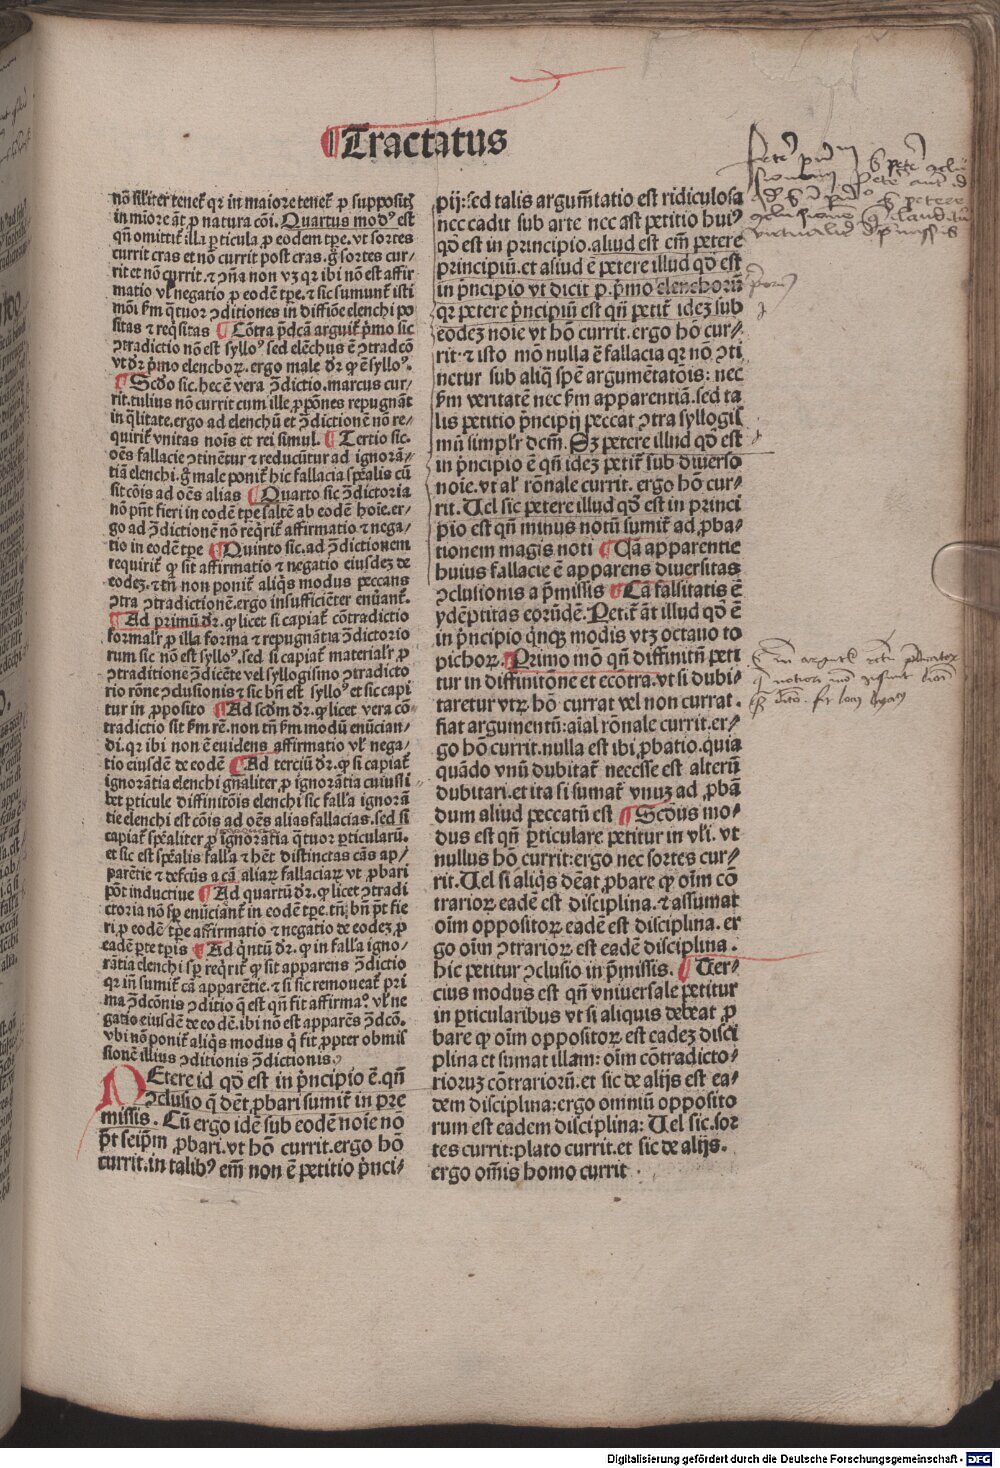 Tractatus
nō sil̄iter tenet᷑ qꝛ in maiore tenet᷑ ꝓ supposit̄
in mīore āt ꝓ natura cōi. Quartus modꝰ est
qn̄ omittit᷑ illa ꝑticula ꝓ eodem tꝑe. vt sortes
currit cras et nō currit post cras. g̊ sortes cur/
rit et nō currit. ⁊ ꝯn̄a non vꝫ qꝛ ibi nō est affir
matio vl̓ negatio ꝓ eodē tꝑe. ⁊ sic sumunt᷑ isti
mōi ẜm q̈tuor ꝯditiones in diffiōe elenchi po
sitas ⁊ reqͥsitas ¶ Cōtra p̄dcā arguit᷑ pͥmo sic
ꝯtradictio nō est sylloꝰ sed elēchus ē ꝯtradcō
vt dꝛ̄ pͥmo elenchoꝝ. ergo male dꝛ̄ ꝙ ē sylloꝰ.
¶ Scd̓o sic. hec ē vera ꝯ̄dictio. marcus cur/
rit. tulius nō currit cum ille ꝓpōnes repugnāt
in q̈litate. ergo ad elenchū et ꝯ̄dictionē nō re/
quirit᷑ vnitas noīs et rei simul. ¶ Tertio sic.
oēs fallacie ꝯtinēt᷑ur ⁊ reducūtur ad ignorā/
tiā elenchi. g̊ male ponit᷑ hic fallacia spēalis cū
sit cōis ad oēs alias ¶ Quarto sic ꝯ̄dictoria
nō pn̄t fieri in eodē tꝑe saltē ab eodē hoīe. er/
go ad ꝯ̄dictionē nō reqͥrit᷑ affirmatio ⁊ nega/
tio in eodē tꝑe ¶ Quinto sic. ad ꝯ̄dictionem
requirit᷑ ꝙ sit affirmatio ⁊ negatio eiusdeꝫ de
eodeꝫ. ⁊ tn̄ non ponit᷑ aliqͥs modus peccans
ꝯtra ꝯtradictionē. ergo insufficiēter enūant᷑.
¶ Ad primū dꝛ̄. ꝙ licet si capiat᷑ cōtradictio
formal̓r ꝓ illa forma ⁊ repugnātia ꝯ̄dictorio
rum sic nō est sylloꝰ. sed si capiat᷑ material̓r ꝓ
ꝯtraditione ꝯ̄dicēte vel syllogismo ꝯtradicto
rio rōne ꝯclusionis ⁊ sic bn̄ est sylloꝰ et sic capi
tur in ꝓposito ¶ Ad scd̓m dꝛ̄. ꝙ licet vera cō
tradictio sit ẜm rē. non tn̄ ẜm modū enūcian/
di. qꝛ ibi non ē euidens affirmatio vl̓ nega/
tio eiusdē de eodē ¶ Ad terciū dꝛ̄. ꝙ si capiat᷑
ignorātia elenchi gn̄aliter ꝓ ignorātia cuiusli
bet ꝑticule diffinitōis elenchi sic fall̓a ignorā
tie elenchi est cōis ad oēs alias fallacias. sed si
capiat᷑ spēaliter ꝓ ignorātia q̈tuor ꝑticularū.
et sic est spēalis fall̓a ⁊ hēt distinctas cās ap/
parētie ⁊ defcūs a cā aliaꝝ fallaciaꝝ vt ꝓbari
pōt inductiue ¶ Ad quartū dꝛ̄. ꝙ licet ꝯtradi
ctoria nō sꝑ enūciant᷑ in eodē tꝑe. tn̄ bn̄ pt̄ fie
ri. ꝓ eodē tꝑe affirmatio ⁊ negatio de eodeꝫ ꝓ
eadē ꝑte tꝑis ¶ Ad qͥntū dꝛ̄. ꝙ in fall̓a igno/
rātia elenchi sꝑ reqͥrit᷑ ꝙ sit apparens ꝯ̄dictio
qꝛ in̄ sumit᷑ cā apparētie. ⁊ si sic remoueat᷑ pri
ma ꝯ̄dcōnis ꝯditio q̄ est qn̄ fit affirmaꝰ vl̓ ne
gatio eiusdē de eodē. ibi nō est apparēs ꝯ̄dcō.
vbi nō ponit᷑ aliqͥs modus q̇ fit ꝓpter obmis
sionē illius ꝯditionis ꝯ̄dictionis.
PEtere id qd̓ est in pͥncipio ē. qn̄
ꝯclusio q̄ dēt ꝓbari sumit᷑ in pre
missis. Cū ergo idē sub eodē noīe nō
pt̄ seip̄m ꝓbari. vt hō currit. ergo hō
currit. in talibꝰ em̄ non ē petitio pͥnci/
pij: sed talis argum̄tatio est ridiculosa
nec cadit sub arte nec ast petitio huiꝰ
qd̓ est in principio. aliud est em̄ petere
principiū. et aliud ē petere illud qd̓ est
in pͥncipio vt dicit p. pͥmo elenchorū
qꝛ petere pͥncipiū est qn̄ petit᷑ ideꝫ sub
eodeꝫ noīe vt hō currit. ergo hō cur/
rit. ⁊ isto mō nulla ē fallacia qꝛ nō ꝯti
netur sub aliq̄ spē argumētatōis: nec
ẜm veritatē nec ẜm apparentiā. sed ta
lis petitio pͥncipij peccat ꝯtra syllogis
mū simpl̓r dcm̄. Sꝫ petere illud qd̓ est
in pͥncipio ē qn̄ ideꝫ petit᷑ sub diuerso
noīe. vt al̓ rōnale currit. ergo hō cur/
rit. Uel sic petere illud qd̓ est in princi
pio est qn̄ minus notū sumit᷑ ad ꝓba/
tionem magis noti ¶ Cā apparentie
huius fallacie ē apparens diuersitas
ꝯclusionis a p̄missis ¶ Cā falsitatis ē
ydēptitas eorūdē. Petit᷑ āt illud qd̓ ē
in pͥncipio qͥnqꝫ modis vtꝫ octauo to
picoꝝ. ¶ Primo mō qn̄ diffinitū peti
tur in diffinitōne et ecōtra. vt si dubi/
taretur vtꝝ hō currat vel non currat.
fiat argumentū: aīal rōnale currit. er/
go hō currit. nulla est ibi ꝓbatio. quia
quādo vnū dubitat᷑ necesse est alterū
dubitari. et ita si sumat᷑ vnuꝫ ad ꝓbā
dum aliud peccatū est ¶ Scd̓us mo/
dus est qn̄ ꝑticulare petitur in vl̓i. vt
nullus hō currit: ergo nec sortes cur/
rit. Uel si aliqͥs dēat ꝓbare ꝙ oīm cō
trarioꝝ eadē est disciplina. ⁊ assumat
oīm oppositoꝝ eadē est disciplina. er
go oīm ꝯtrarioꝝ est eadē disciplina.
hic petitur ꝯclusio in p̄missis. ¶ Ter/
cius modus est qn̄ vniuersale petitur
in ꝑticularibus vt si aliquis debeat ꝓ
bare ꝙ oīm oppositoꝝ est eadeꝫ disci
plina et sumat illam: oīm cōtradicto/
rioruꝫ cōtrariorū. et sic de alijs est ea/
dem disciplina: ergo omniū opposito
rum est eadem disciplina: Uel sic. sor
tes currit: plato currit. et sic de alijs.
ergo om̄is homo currit
Digitalisierung gefördert durch die Deutsche Forschungsgemeinschaft - DFG